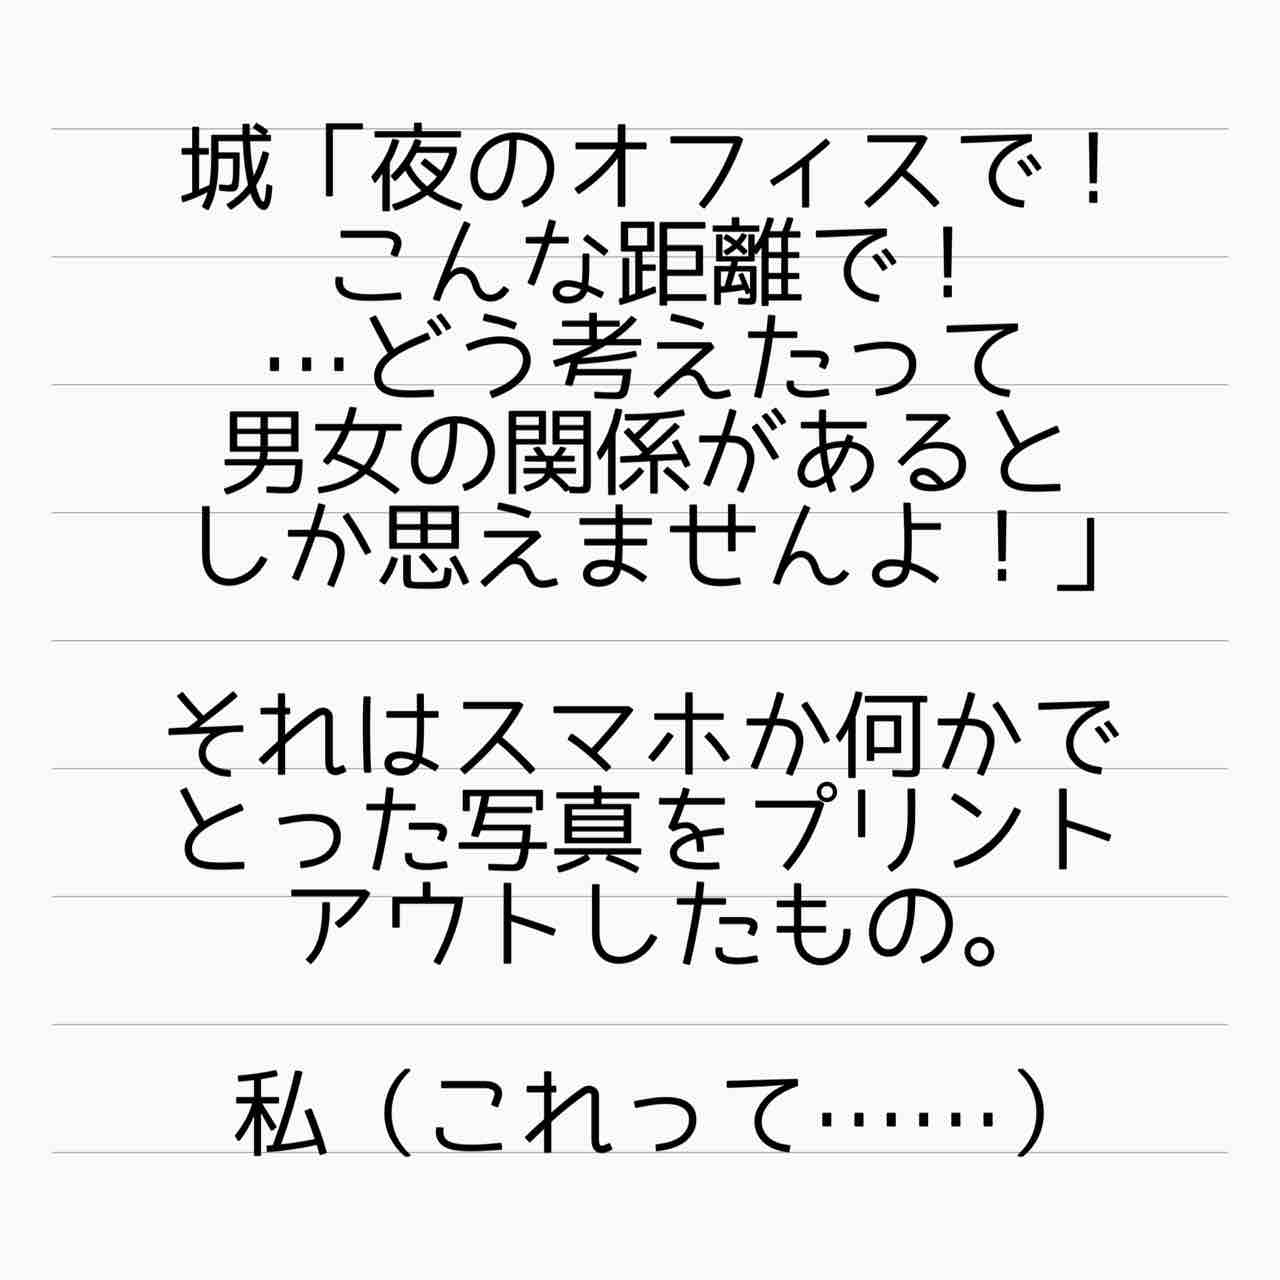 城「夜のオフィスで！
こんな距離で！
…どう考えたって
男女の関係があると
しか思えませんよ！」
それはスマホか何かで
とった写真をプリント
アウトしたもの。
私（これって……）